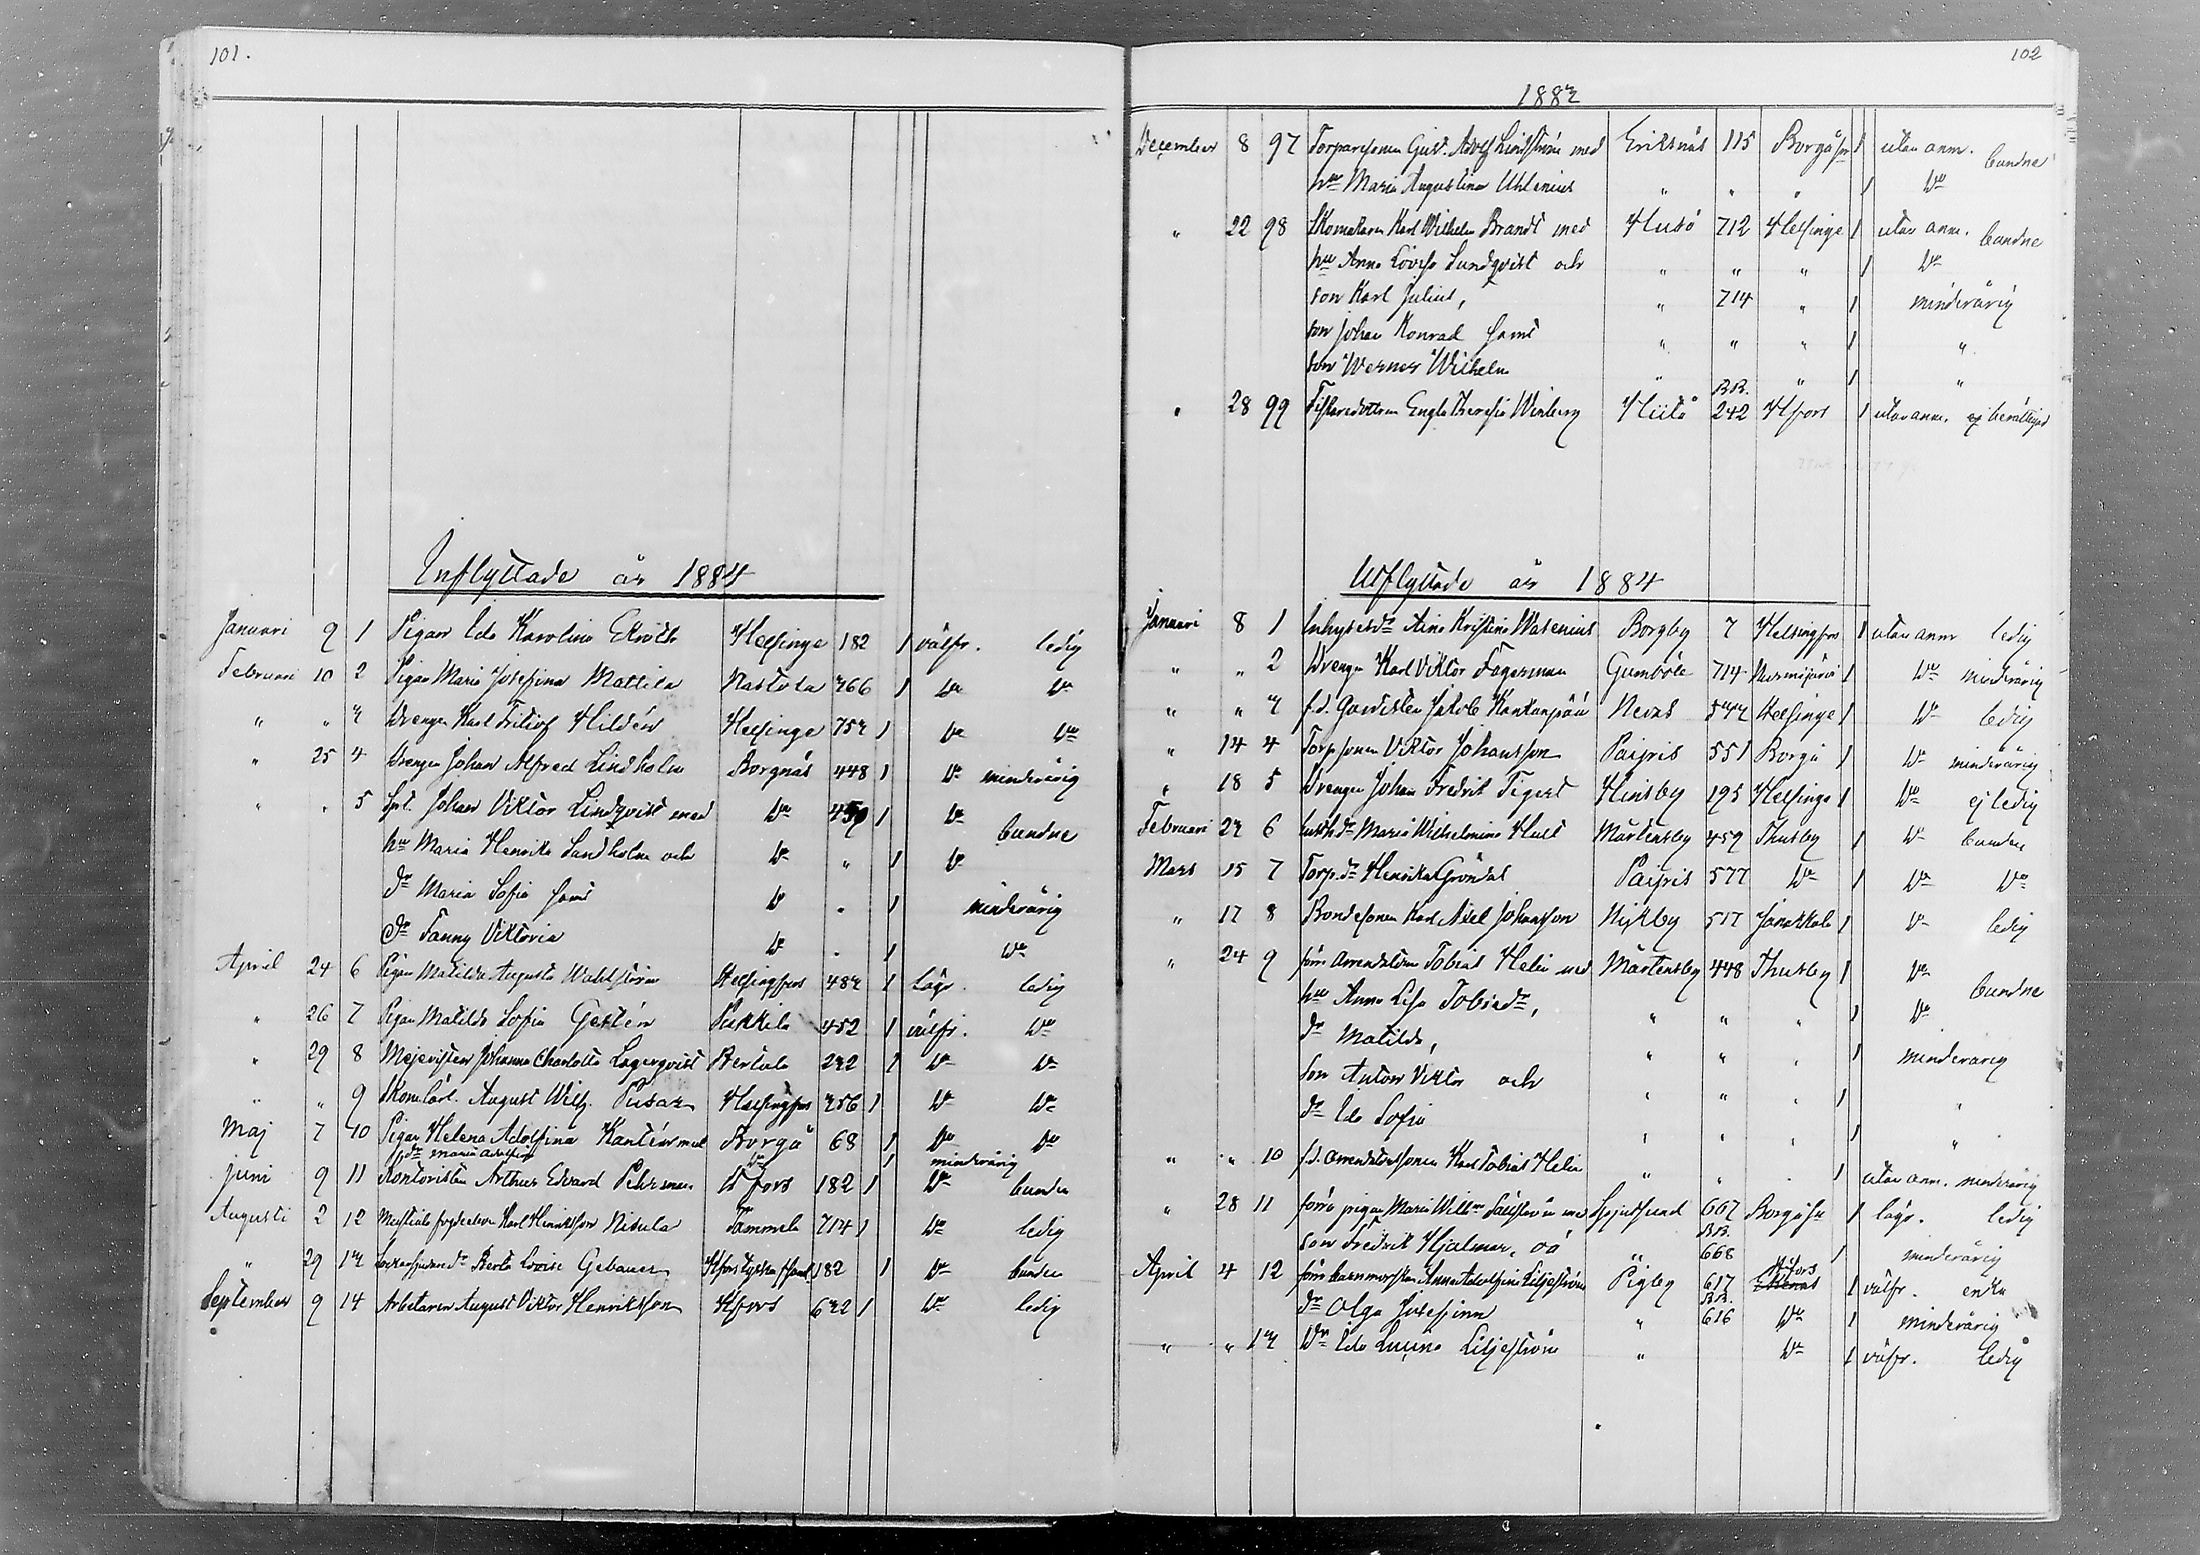 101.
Inflyttade år 1884
Januari 9 1 Pigan Ida Karolina Helsinge 182 1 välfr. ledig
Februari 10 2 Pigan Maria Josefina Mattila Nastola 366 1 Do Do
" " 3 Drengen Karl Fritiof Hildén Helsinge 753 1 Do Do
" 25 4 Drengen Johan Alfred Lindholm Borgnäs 448 1 Do minderårig
" " 5 Johan Viktor Lindqvist med Do 459 1 Do bundne
hu Maria Henrika Sandholm och Do " 1 Do
dr Maria Sofia samt Do " 1 minderårig
dr Fanny Viktoria Do " 1 Do
April 24 6 Pigan Matilda Augusta Wahlström Helsingfors 483 1 läge. ledig
" 26 7 Pigan Matilda Sofia Gestén Pukkila 452 1 välfr. Do
" 29 8 Mejeristen Johanna Charlotta Lagerqvist 232 1 Do Do
" " 9 August Wilh. Helsingfors 356 1 Do Do
Maj 7 10 Pigan Helena Adolfina med Borgå 68 1 Do Do
dr Maria Do 1 minderårig
Juni 9 11 Kontoristen Arthur Edvard Pehrman Hfors 182 1 Do bunden
Augusti 2 12 Karl Henriksson Nikula Tammela 714 1 Do ledig
" 29 13 Berta Lovise Gebauer Hfors tyska förs. 182 1 Do bunden
September 9 14 Arbetaren August Viktor Henriksson Hfors 632 1 Do ledig
102
1883
December 8 97 Torparesonen Gust. Adolf Lindström med Eriksnäs 115 Borgå sn 1 utan anm. bundne
hu Maria Augustina Uhlenius " " " 1 Do
" 22 98 Skomakaren Karl Wilhelm Brandt med Husö 712 Helsinge 1 utan anm. bundne
hu Anna Lovisa Sundqvist och " " " 1 Do
son Karl Julius, " 714 " 1 minderårig
son Johan Konrad samt " " " 1 "
son Werner Wilhelm " " 1 "
B.B.
" 28 99 Fiskaredottren Engla Theresia Winberg Hitå 242 Hfors 1 utan anm. ej berättigad
Utflyttade år 1884
Januari 8 1 Inhysesdr Aina Kristina Wasenius Borgby 7 Helsingfors 1 utan anm ledig
" " 2 Drengen Karl Viktor Fagerman Gumböle 714 Nurmijärvi 1 Do minderårig
" " 3 f.d. Gardisten Jakob Kankanpää Nevas 543 Helsinge 1 Do ledig
" 14 4 Torpsonen Viktor Johansson Paipis 551 Borgå 1 Do minderårig
" 18 5 Drengen Johan Fredrik Tigert Hinsby 195 Helsinge 1 Do ej ledig
Februari 23 6 Maria Wilhelmina Mårtensby 459 Thusby 1 Do bunden
Mars 15 7 Torp.dr Henrika Gröndal Paipis 577 Do 1 Do Do
" 17 8 Bondesonen Karl Axel Johansson Nikby 517 Janakkala 1 Do ledig
" 24 9 förre Arrendatorn Tobias Helin med Mårtensby 448 Thusby 1 Do bundne
hu Anna Lisa Tobiasdr, " " " 1 Do
dr Matilda, " " " 1 minderårig
son Anton Viktor och " " " 1 "
dr Ida Sofia " " " 1 "
" " 10 f.d. arrendatorssonen Karl Tobias Helin " " " 1 utan anm. minderårig
" 28 11 förra pigan Maria Spjutsund 667 Borgå sn 1 läge. ledig
B.B.
son Fredrik Hjalmar, oä " 668 1 minderårig
April 4 12 förra barnmorskan Anna Adolfina Liljeström Pigby 617 Hfors 1 välfr. enka
B.B.
dr Olga Josefina " 616 Do 1 minderårig
" " 13 Dr Ida Liljeström " Do 1 välfr. ledig